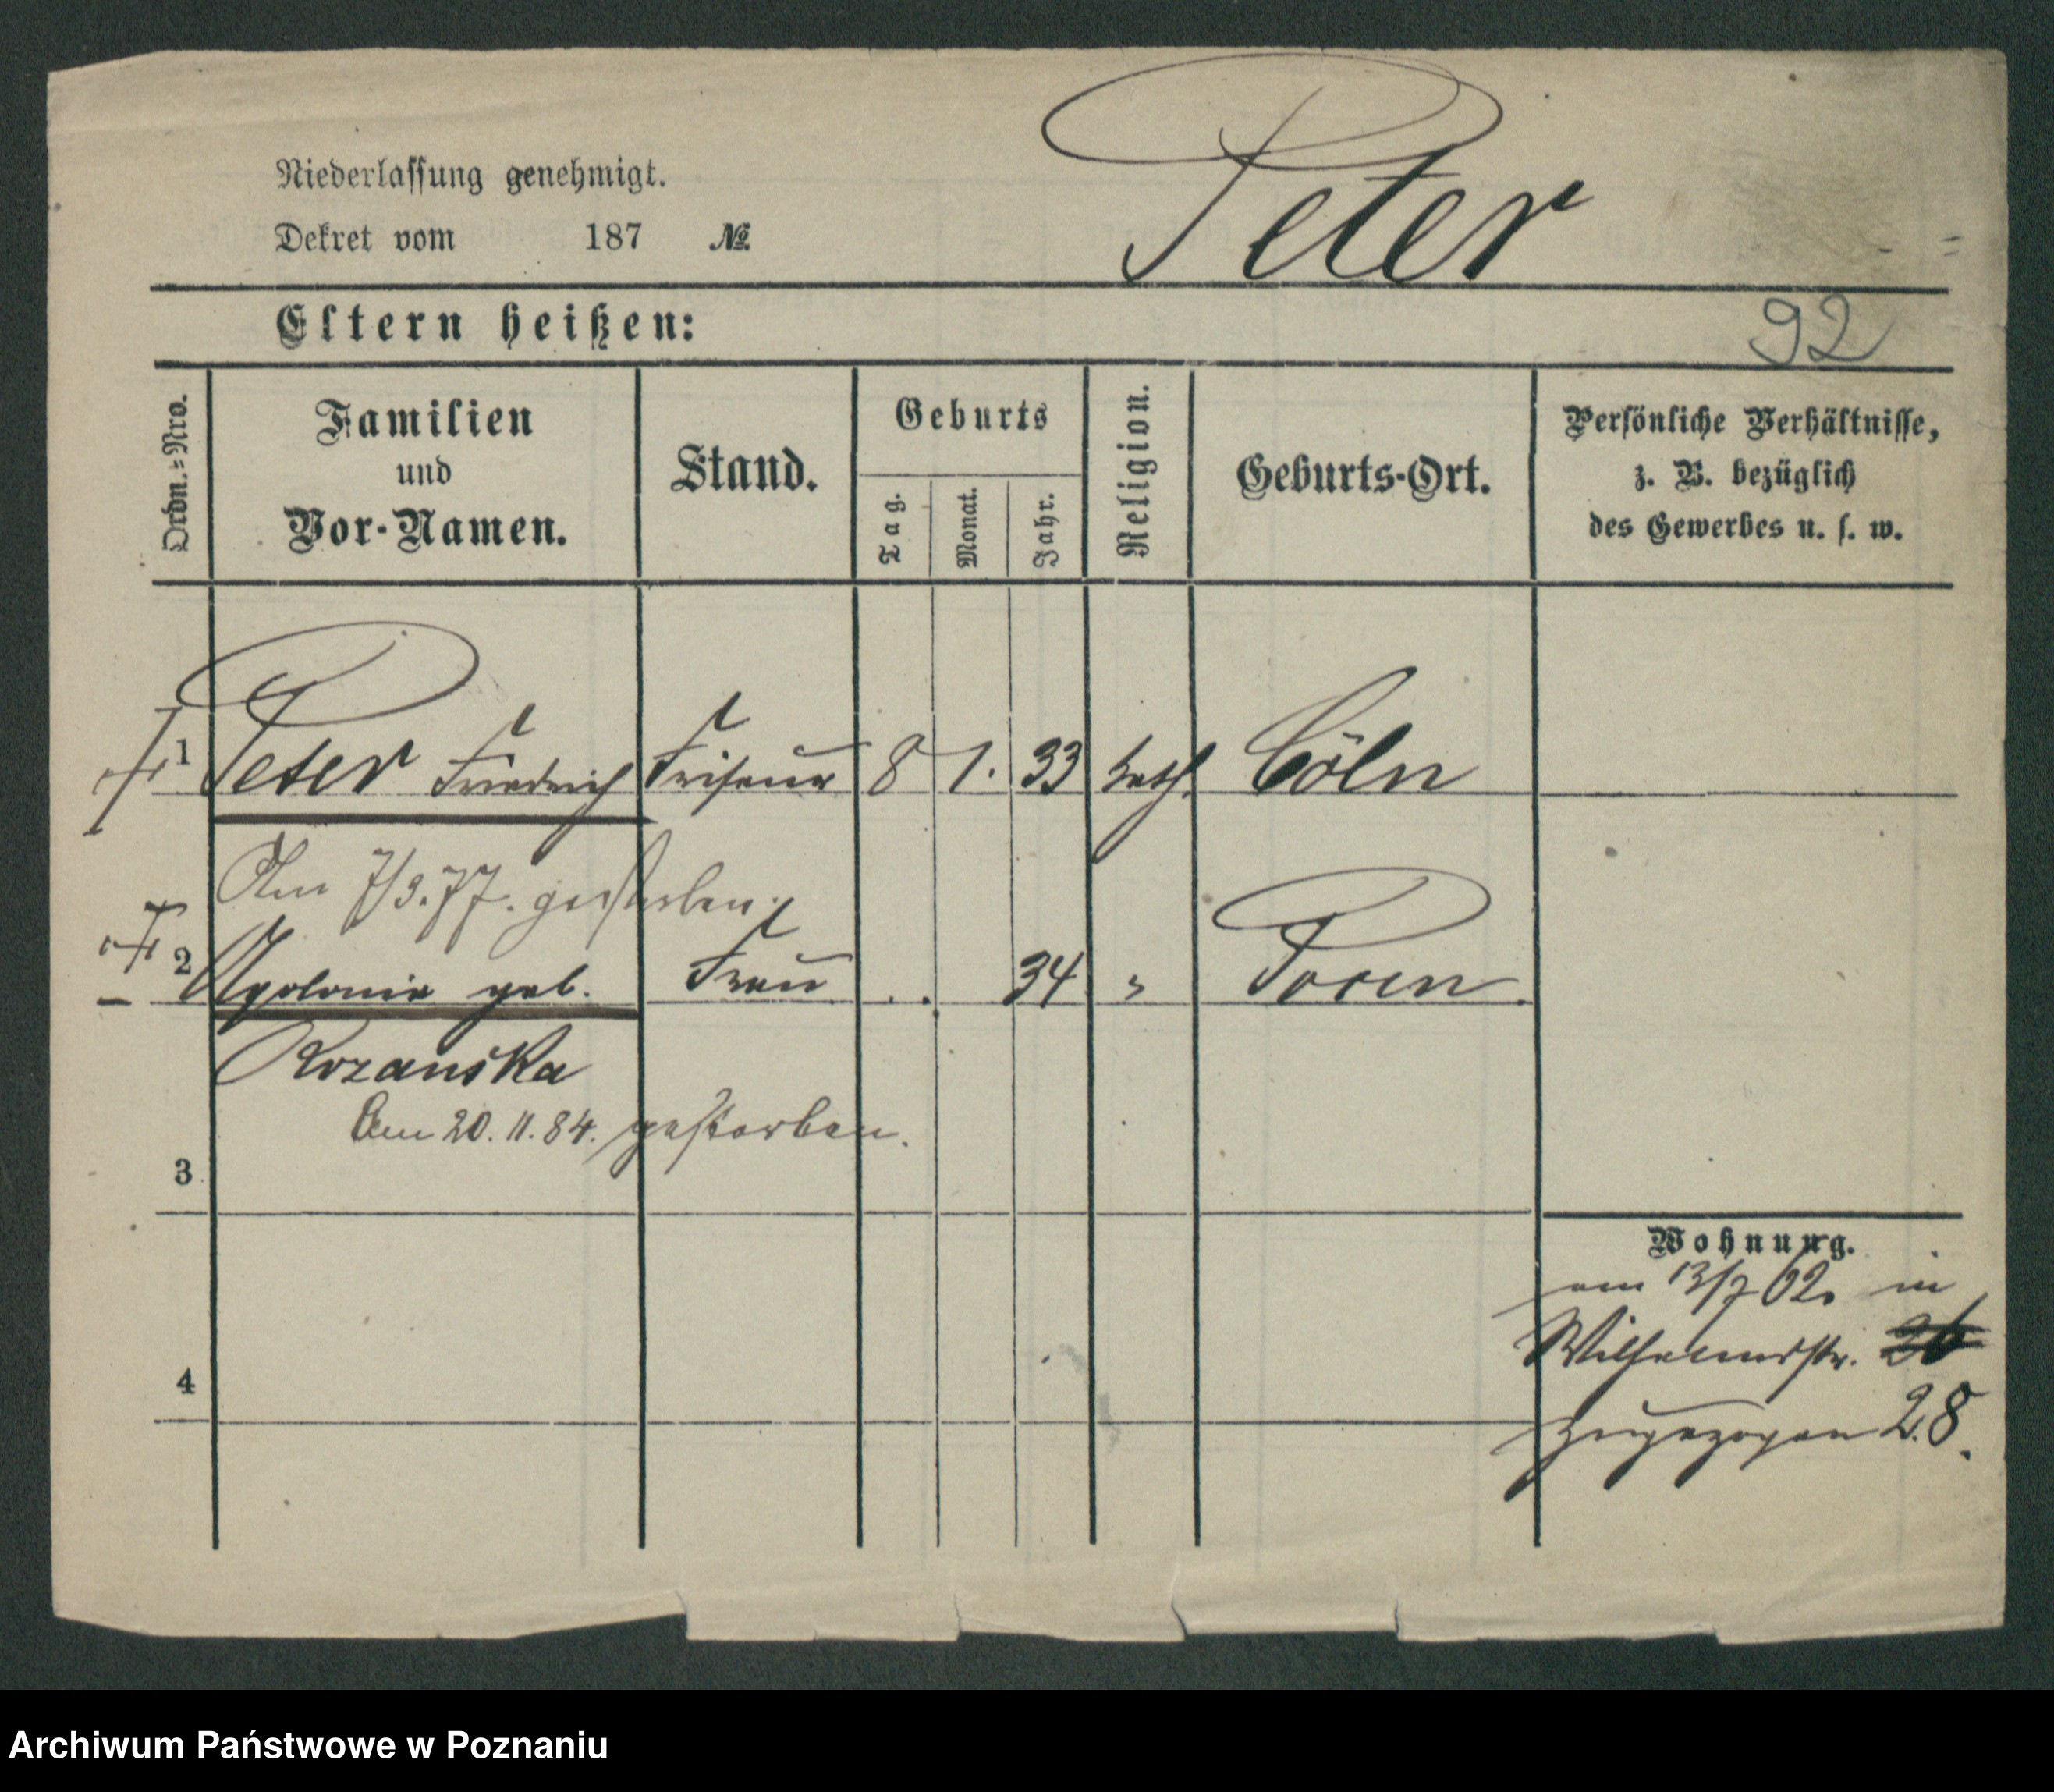 Peter
Niederlassung genehmigt.
Dekret vom 187 №
Eltern heißen:
92
Ordn.=Nro.
Familien
und
Vor-Namen.
Stand.
Geburts
Tag.
Monat.
Jahr.
Religion.
Geburts-Ort.
Persönliche Verhältnisse,
z. B. bezüglich
des Gewerbes u. s. w.
1 Peter Friedrich Friseur 8 1. 33 kath. Cöln
Am 7/3.77. gestorben.
2 Apolonia geb. Frau 34 " Posen.
Rozanska
Am 20.11.84. gestorben.
3
4
Wohnung.
am 13/7 62. in
Wilhelmstr. 26
zugezogen 28.
Archiwum Państwowe w Poznaniu